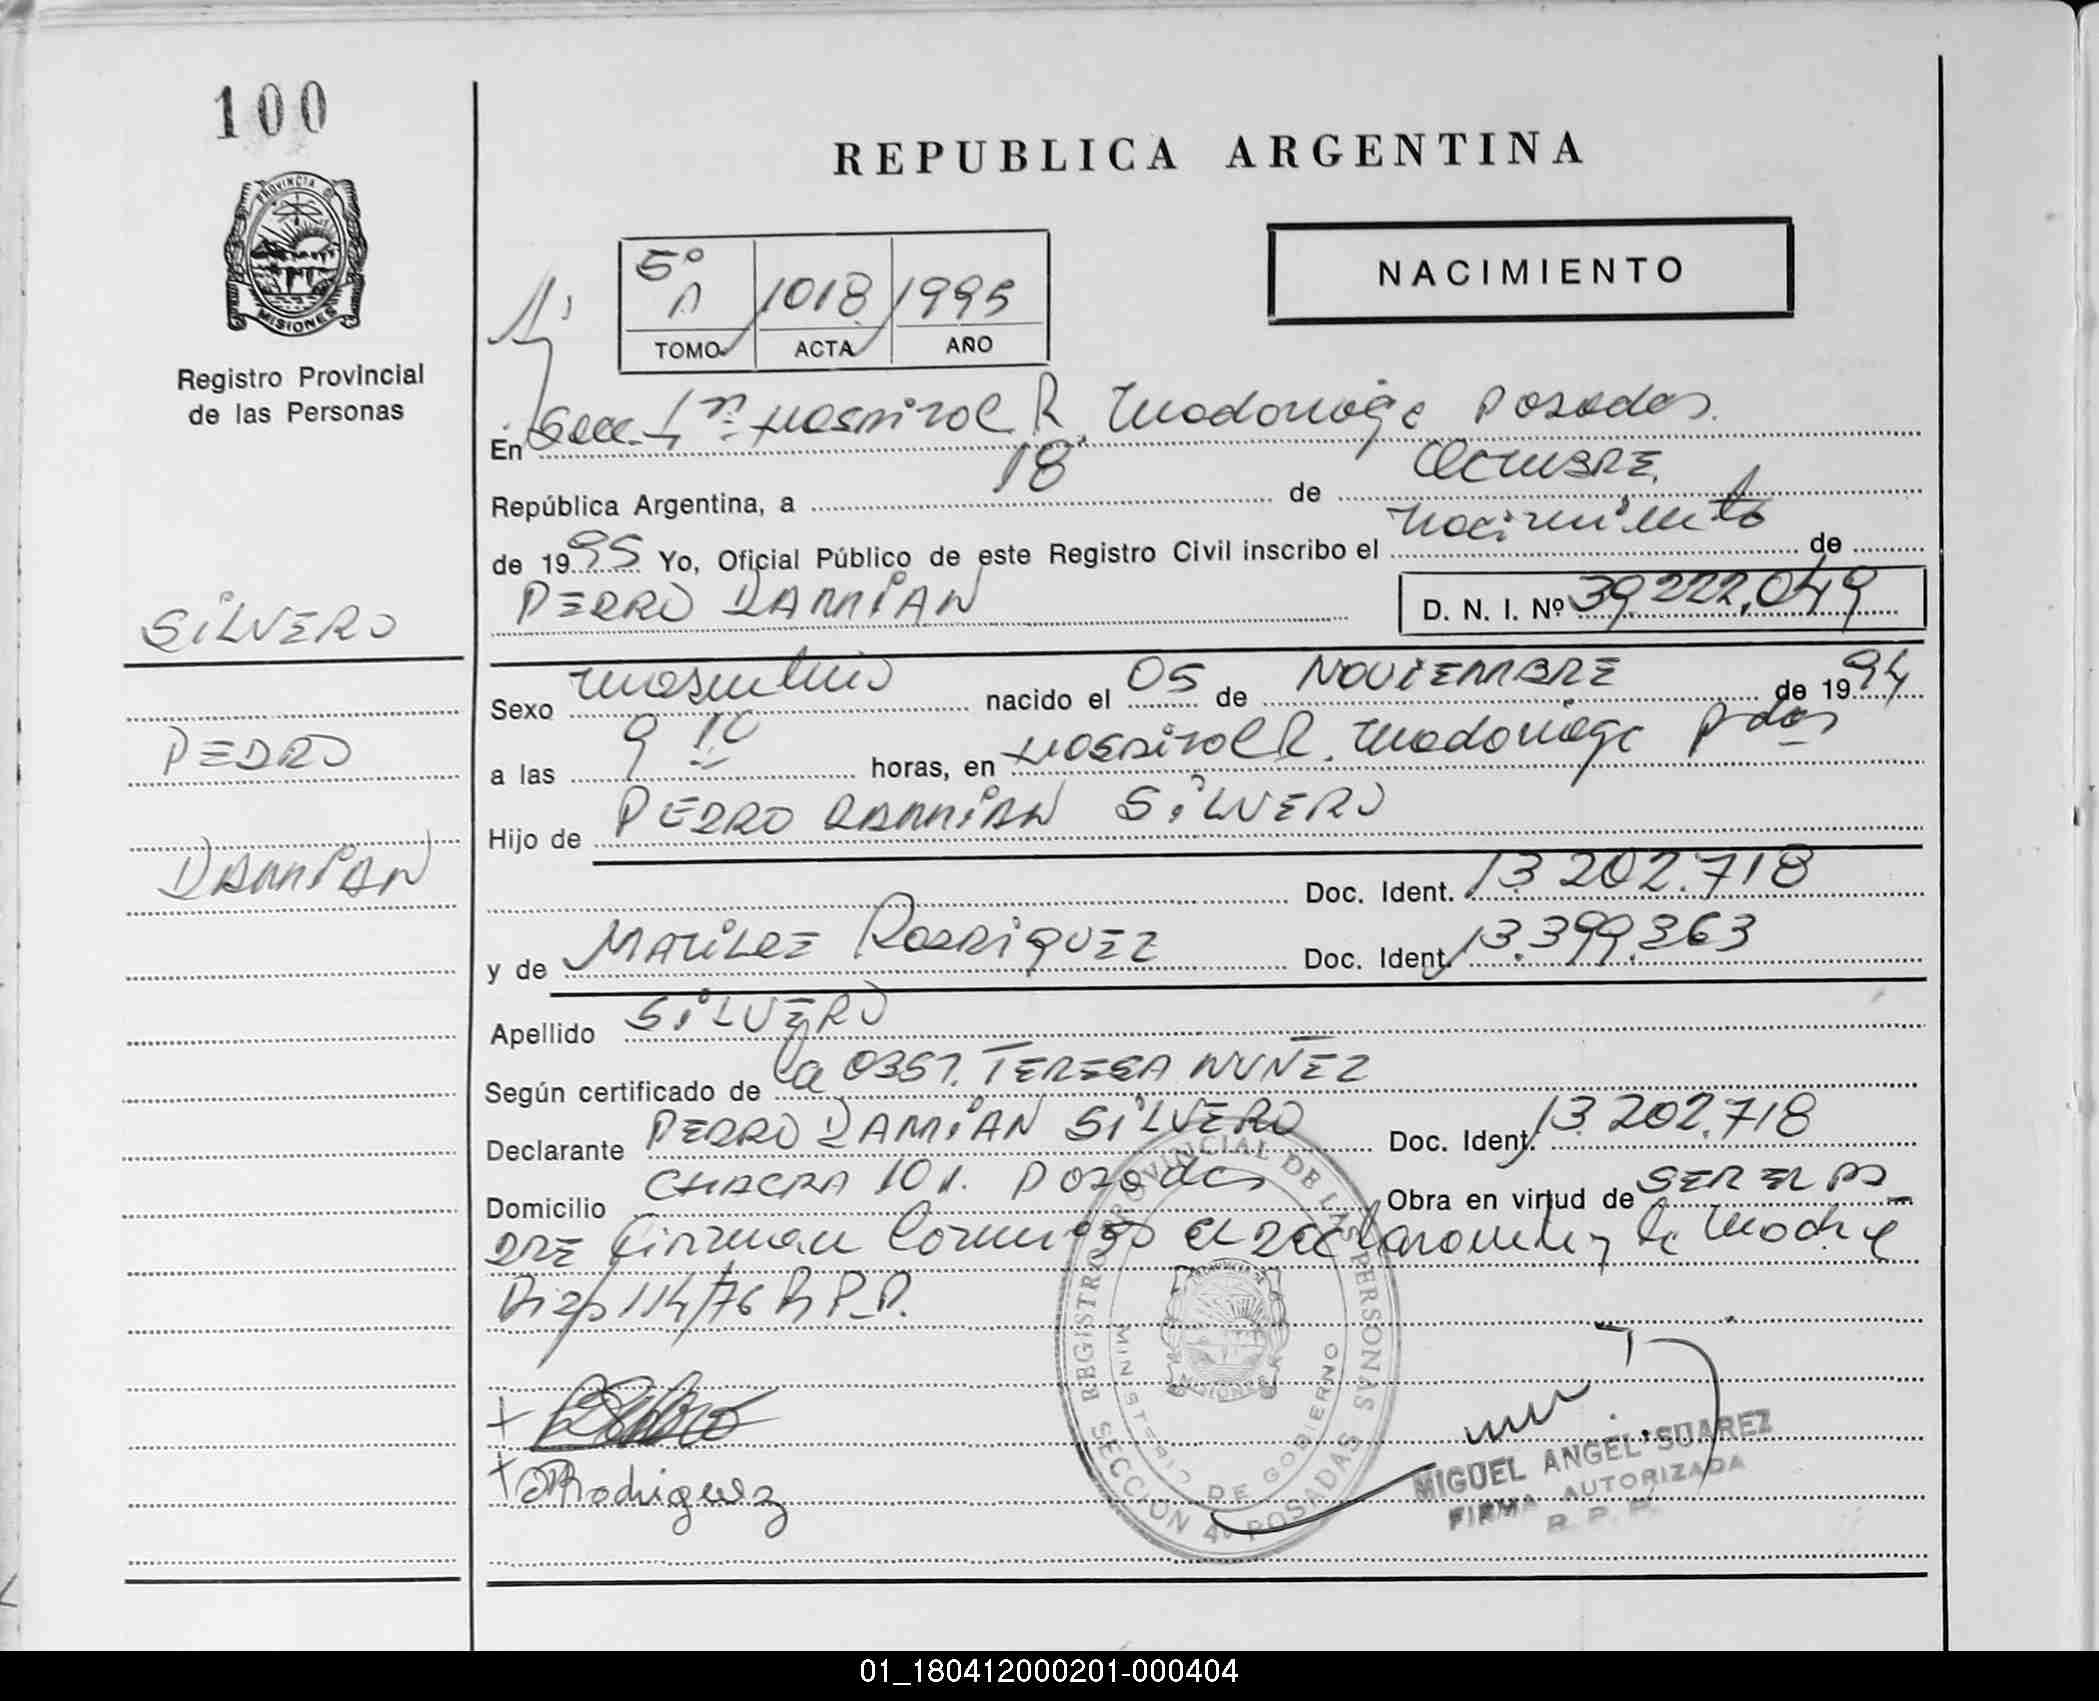 100
PROVINCIA DE
MISIONES
Registro Provincial
de las Personas
REPUBLICA ARGENTINA
NACIMIENTO
5º
A 1018 1995
TOMO ACTA AÑO
En Secc. Hospital R. Madariaga Posadas.
República Argentina, a 18 de Octubre
de 1995 Yo, Oficial Público de este Registro Civil inscribo el nacimiento de
PEDRO DAMIAN D. N. I. Nº 39.222.049
SILVERO
Sexo masculino nacido el 05 de NOVIEMBRE de 1994
PEDRO
a las 9 10 horas, en Hospital R. Madariaga Pdas
Hijo de PEDRO DAMIAN SILVERO
DAMIAN
Doc. Ident. 13.202.718
y de MARILDE RODRIQUEZ Doc. Ident. 13.399.363
Apellido SILVERO
Según certificado de la OBST. TERESA NUÑEZ
Declarante PEDRO DAMIAN SILVERO Doc. Ident. 13.202.718
Domicilio CHACRA 101. Posadas Obra en virtud de SER EL PA
DRE Firman Conmigo el declarante y la Madre
Disp 114/76 R.P.P.
Rodriguez
REGISTRO PROVINCIAL DE LAS PERSONAS
MINISTERIO DE GOBIERNO
MISIONES
SECCION 4ª POSADAS
MIGUEL ANGEL SUAREZ
FIRMA AUTORIZADA
R. P. P.
01_180412000201-000404